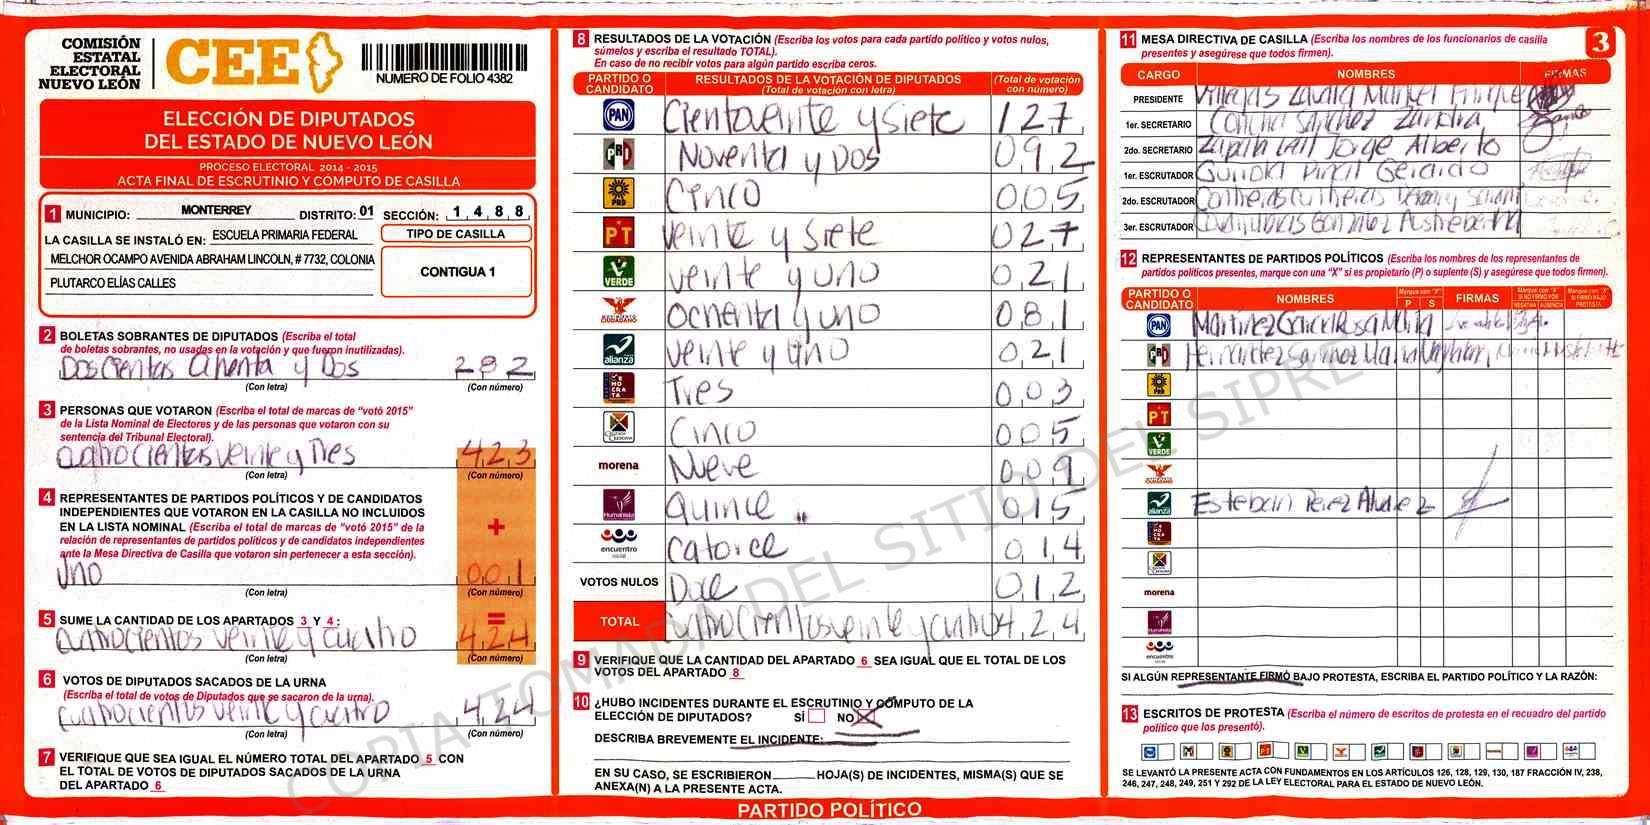 COMISIÓN
ESTATAL
ELECTORAL
NUEVO LEÓN
CEE
NUMERO DE FOLIO 4382
ELECCIÓN DE DIPUTADOS
DEL ESTADO DE NUEVO LEÓN
PROCESO ELECTORAL 2014 - 2015
ACTA FINAL DE ESCRUTINIO Y CÓMPUTO DE CASILLA
1 MUNICIPIO: MONTERREY DISTRITO: 01 SECCIÓN: 1 4 8 8
LA CASILLA SE INSTALÓ EN: ESCUELA PRIMARIA FEDERAL
MELCHOR OCAMPO AVENIDA ABRAHAM LINCOLN, # 7732, COLONIA
PLUTARCO ELÍAS CALLES
TIPO DE CASILLA
CONTIGUA 1
2 BOLETAS SOBRANTES DE DIPUTADOS (Escriba el total
de boletas sobrantes, no usadas en la votación y que fueron inutilizadas).
Doscientas Ochenta y Dos 282
(Con letra) (Con número)
3 PERSONAS QUE VOTARON (Escriba el total de marcas de "votó 2015"
de la Lista Nominal de Electores y de las personas que votaron con su
sentencia del Tribunal Electoral).
cuatrocientos veinte y Tres 423
(Con letra) (Con número)
4 REPRESENTANTES DE PARTIDOS POLÍTICOS Y DE CANDIDATOS
INDEPENDIENTES QUE VOTARON EN LA CASILLA NO INCLUIDOS
EN LA LISTA NOMINAL (Escriba el total de marcas de "votó 2015" de la
relación de representantes de partidos políticos y de candidatos independientes
ante la Mesa Directiva de Casilla que votaron sin pertenecer a esta sección).
+
uno 001
(Con letra) (Con número)
5 SUME LA CANTIDAD DE LOS APARTADOS 3 Y 4:
=
cuatrocientos veinte y cuatro 424
(Con letra) (Con número)
6 VOTOS DE DIPUTADOS SACADOS DE LA URNA
(Escriba el total de votos de Diputados que se sacaron de la urna).
cuatrocientos veinte y cuatro 424
(Con letra) (Con número)
7 VERIFIQUE QUE SEA IGUAL EL NÚMERO TOTAL DEL APARTADO 5 CON
EL TOTAL DE VOTOS DE DIPUTADOS SACADOS DE LA URNA
DEL APARTADO 6
8 RESULTADOS DE LA VOTACIÓN (Escriba los votos para cada partido político y votos nulos,
súmelos y escriba el resultado TOTAL).
En caso de no recibir votos para algún partido escriba ceros.
PARTIDO O CANDIDATO RESULTADOS DE LA VOTACIÓN DE DIPUTADOS (Total de votación con letra) (Total de votación con número)
PAN Cientoveinte y siete 127
PRI Noventa y Dos 092
PRD Cinco 005
PT veinte y siete 027
VERDE veinte y uno 021
CIUDADANO ochenta y uno 081
alianza veinte y uno 021
DEMOCRATA Tres 003
Cinco 005
morena Nueve 009
Humanista Quince 015
encuentro social catorce 014
VOTOS NULOS Doce 012
TOTAL cuatrocientos veinte y cuatro 424
9 VERIFIQUE QUE LA CANTIDAD DEL APARTADO 6 SEA IGUAL QUE EL TOTAL DE LOS
VOTOS DEL APARTADO 8
10 ¿HUBO INCIDENTES DURANTE EL ESCRUTINIO Y CÓMPUTO DE LA
ELECCIÓN DE DIPUTADOS? SÍ NO X
DESCRIBA BREVEMENTE EL INCIDENTE:
EN SU CASO, SE ESCRIBIERON HOJA(S) DE INCIDENTES, MISMA(S) QUE SE
ANEXA(N) A LA PRESENTE ACTA.
PARTIDO POLÍTICO
11 MESA DIRECTIVA DE CASILLA (Escriba los nombres de los funcionarios de casilla
presentes y asegúrese que todos firmen).
3
CARGO NOMBRES FIRMAS
PRESIDENTE Villegas Zavala Manuel Enrique
1er. SECRETARIO Sanchez Zandra
2do. SECRETARIO Zapata Leal Jorge Alberto
1er. ESCRUTADOR Gerardo
2do. ESCRUTADOR
3er. ESCRUTADOR Gonzalez
12 REPRESENTANTES DE PARTIDOS POLÍTICOS (Escriba los nombres de los representantes de
partidos políticos presentes, marque con una "X" si es propietario (P) o suplente (S) y asegúrese que todos firmen).
PARTIDO O CANDIDATO NOMBRES Marque con "X" P S FIRMAS Marque con "X" SI NO FIRMÓ POR NEGATIVA AUSENCIA Marque con "X" SI FIRMÓ BAJO PROTESTA
PAN Martinez Garcia Rosa Maria
PRI Hernandez
PRD
PT
VERDE
alianza Esteban Perez Alvarez
morena
Humanista
encuentro social
SI ALGÚN REPRESENTANTE FIRMÓ BAJO PROTESTA, ESCRIBA EL PARTIDO POLÍTICO Y LA RAZÓN:
13 ESCRITOS DE PROTESTA (Escriba el número de escritos de protesta en el recuadro del partido
político que los presentó).
SE LEVANTÓ LA PRESENTE ACTA CON FUNDAMENTOS EN LOS ARTÍCULOS 126, 128, 129, 130, 187 FRACCIÓN IV, 238,
246, 247, 248, 249, 251 Y 292 DE LA LEY ELECTORAL PARA EL ESTADO DE NUEVO LEÓN.
COPIA TOMADA DEL SITIO DEL SIPRE